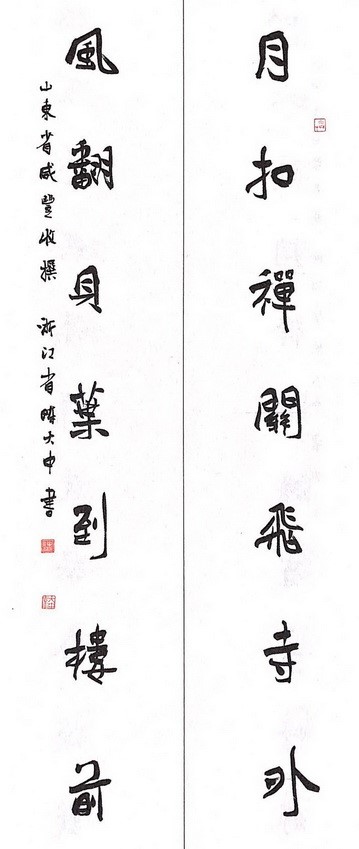 月扣禪關飛寺外
風翻貝葉到樓前
山東省豐收撰 浙江省大申書